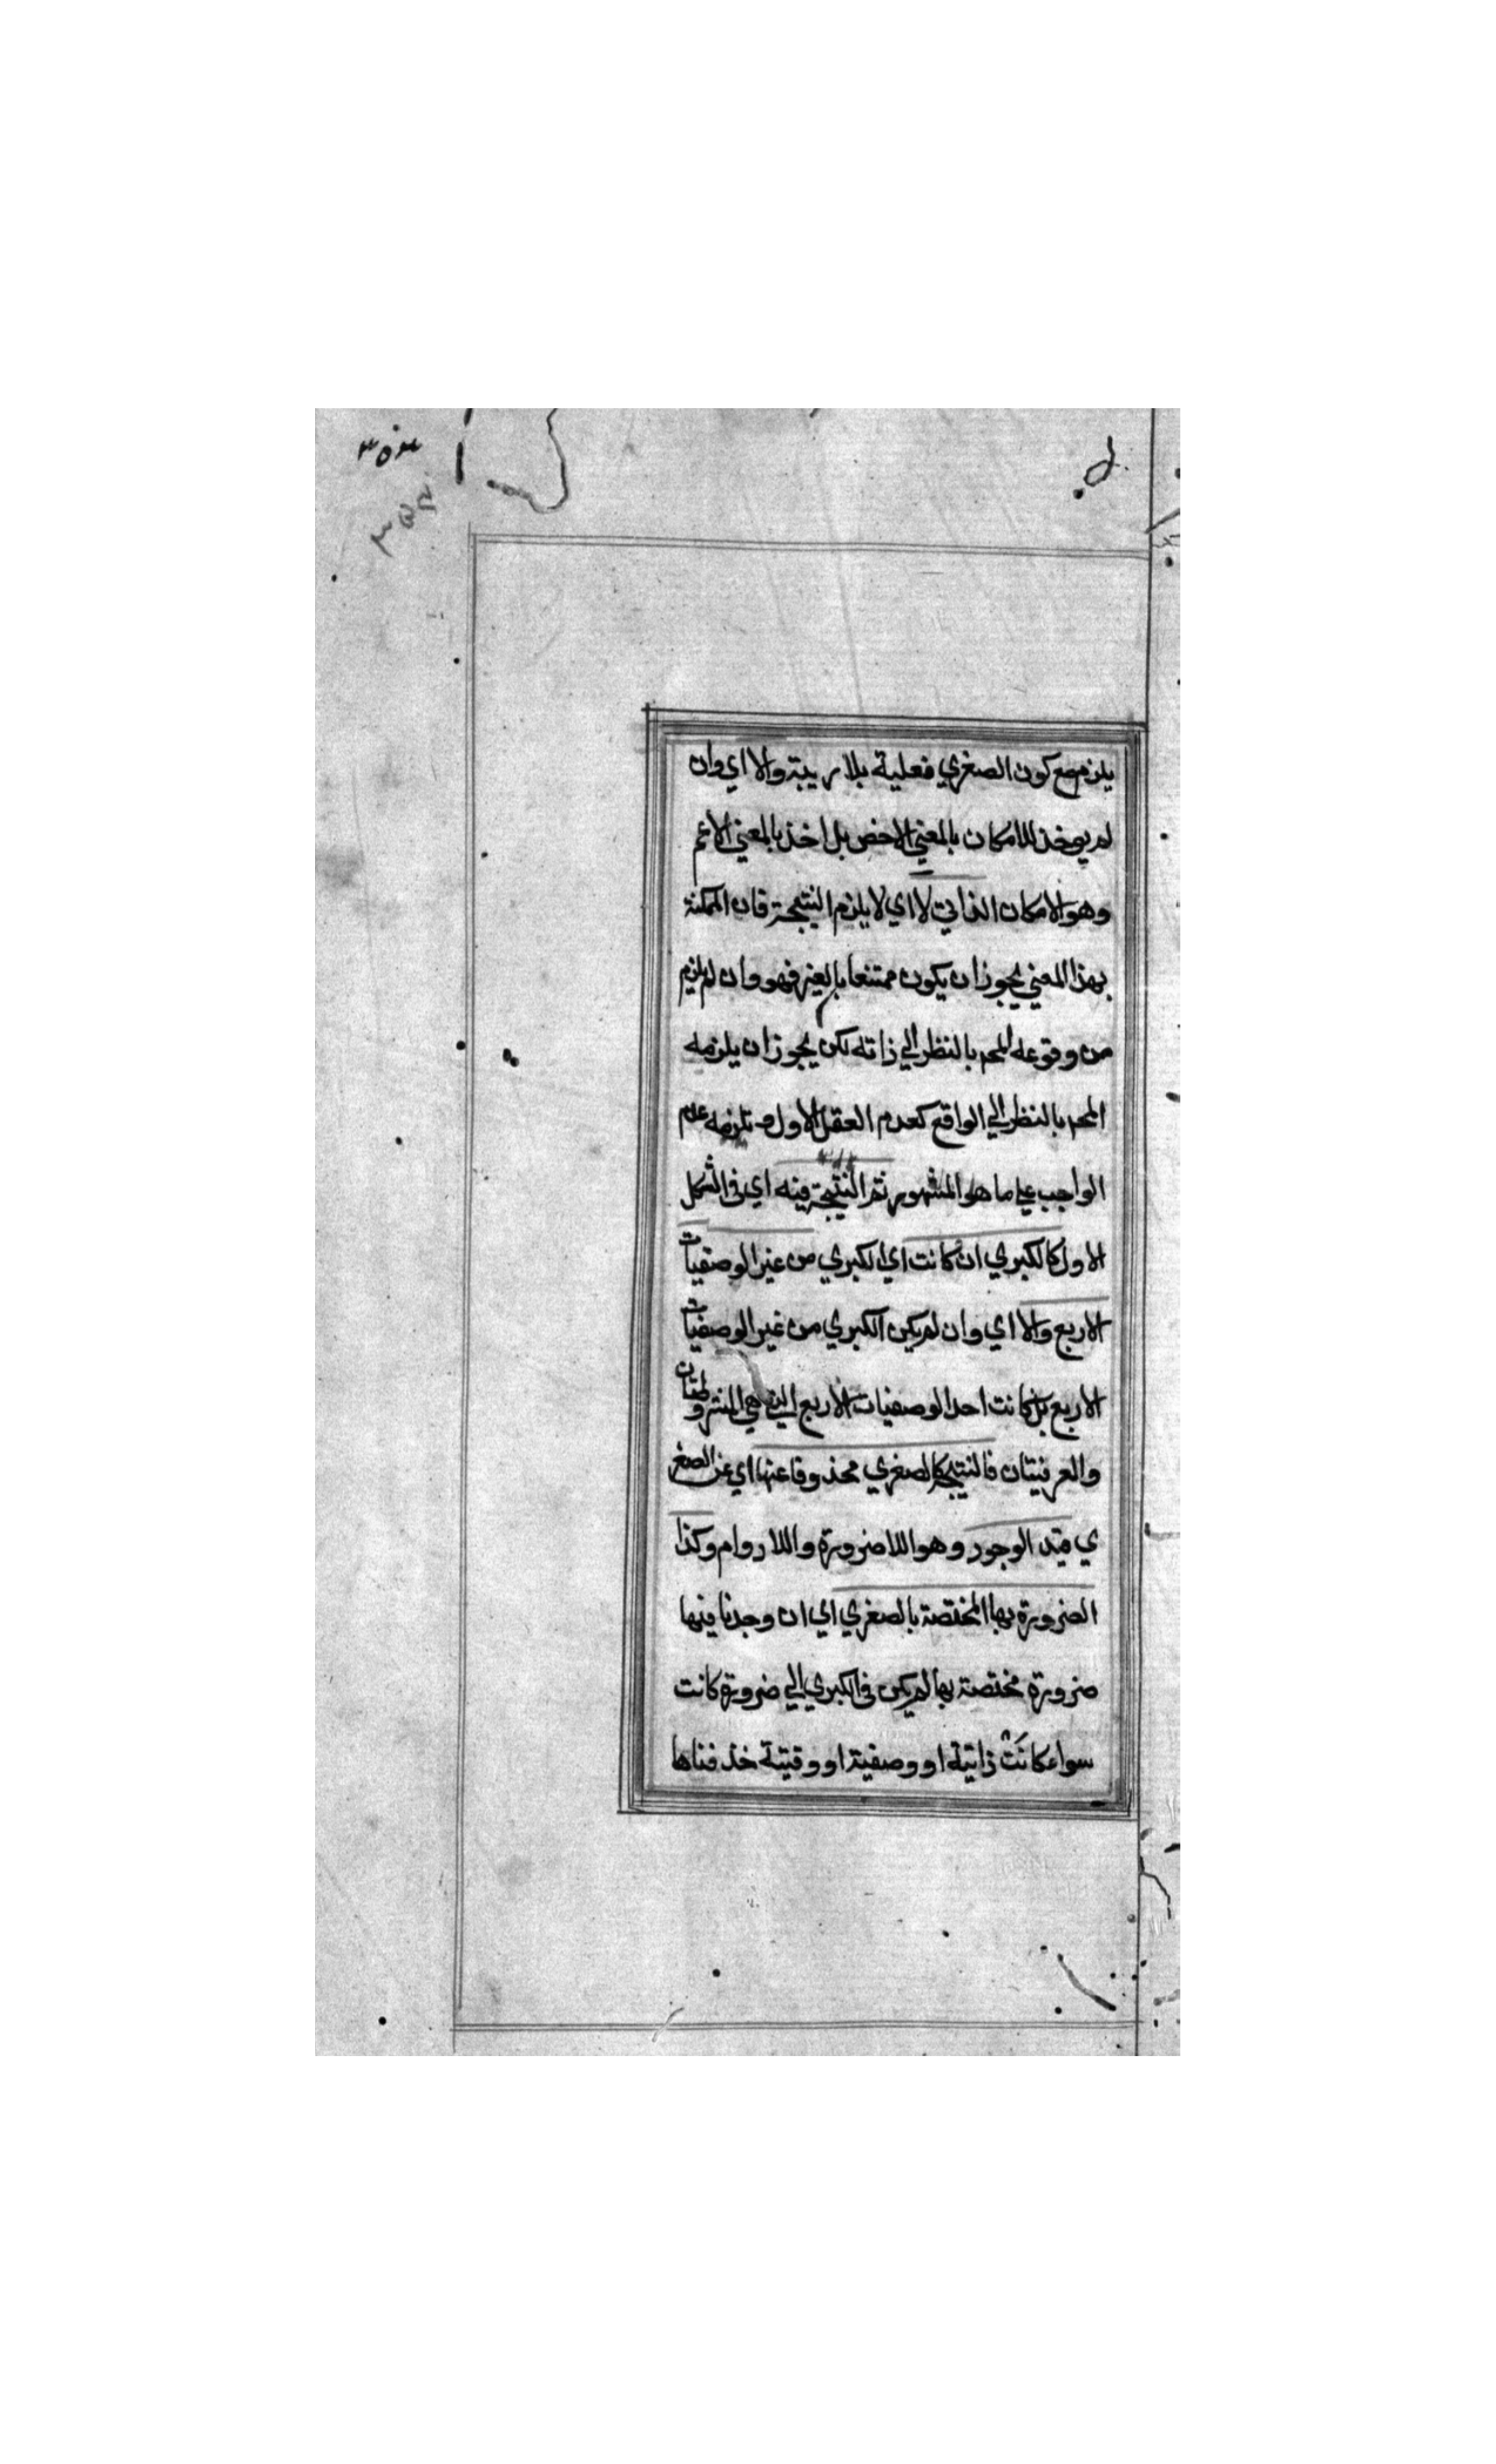 ٣٥٣
٣٥٣
يلزم مع كون الصغري فعلية بلا ريبة والا اي وان
لم يوخذ للامكان بالمعني الاخص بل اخذ بالمعني الاعم
وهو الامكان الذاتي لا اي لا يلزم النتيجة فان الممكنة
بهذا المعني يجوز ان يكون ممتنعا بالغير فهو وان لم يلزم
من وقوعه المح بالنظر الي ذاته لكن يجوز ان يلزمه
المح بالنظر الي الواقع كعدم العقل الاول يلزمه عدم
الواجب علي ما هو المشهور ثم النتيجة فيه اي في الشكل
الاول كالكبري ان كانت اي الكبري من غير الوصفيات
الاربع والا اي وان لم يكن الكبري من غير الوصفيات
الاربع بل كانت احد الوصفيات الاربع التي هي المشروطتان
والعرفيتان فالنتيجة كالصغري محذوفا عنها اي عن الصغر
ي قيد الوجود وهو اللاضرورة واللادوام وكذا
الضرورة بها المختصة بالصغري اي ان وجدنا فيها
ضرورة مختصة بها لم يكن في الكبري الي ضرورة كانت
سواء كانت ذاتية او وصفية او وقتية حذفناها